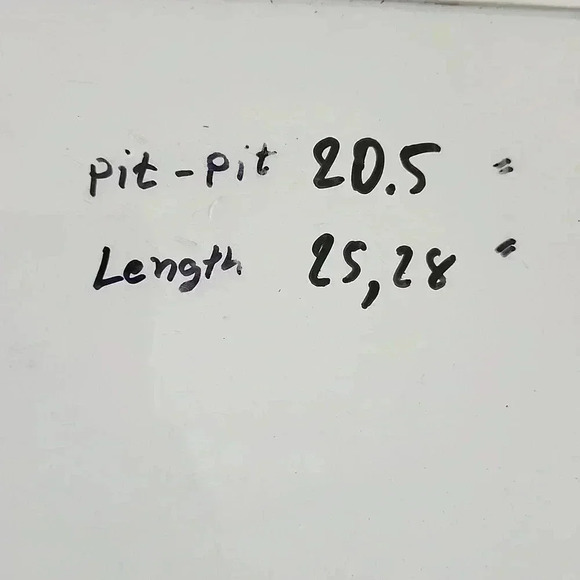 pit-pit 20.5 "
Length 25,28 "